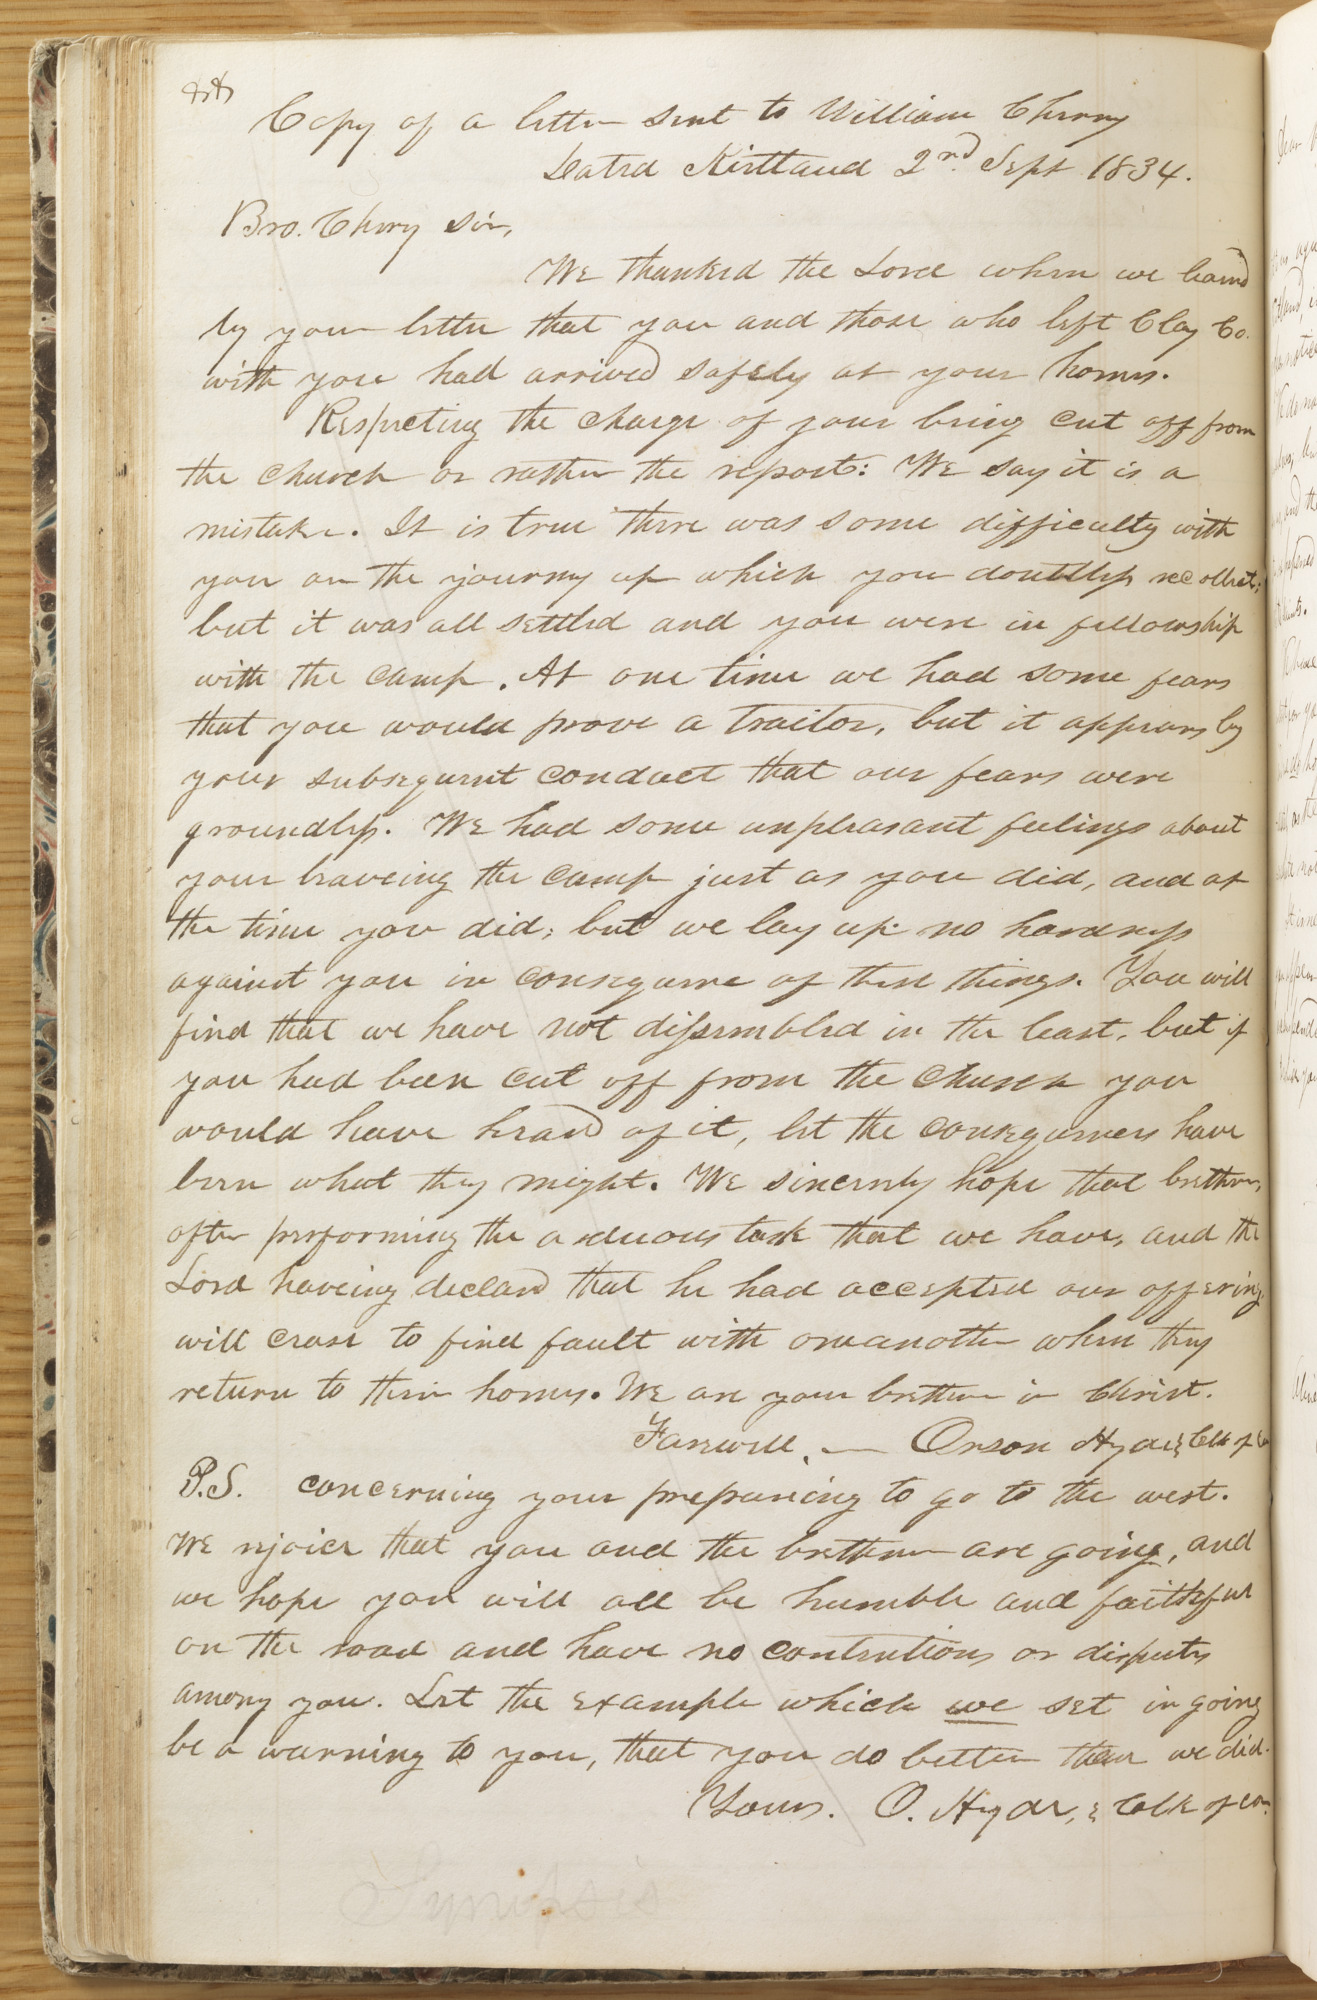 Copy of a letter sent to William Cherry
Dated Kirtland 2nd Sept 1834.
Bro. Chery Sir,
We thanked the Lord when we learnd
by your letter that you and those who left Clay Co.
with you had arrived safely at your homes.
Respecting the charge of your being cut off from
the church or rather the report: We say it is a
mistake. It is true there was some difficulty with
you on the journey up which you doubtless recollect;
but it was all settled and you were in fellowship
with the camp. At one time we had some fears
that you would prove a traitor, but it appears by
your subsequent conduct that our fears were
groundless. We had some unpleasant feelings about
your leaveing the camp just as you did, and at
the time you did; but we lay up no hardness
against you in consequence of these things. You will
find that we have not dissembled in the least, but if
you had been cut off from the church you
would have heard of it, let the consequences have
been what they might. We sincerely hope that brethren,
after performing the arduous task that we have, and the
Lord haveing declared that he had accepted our offering
will cease to find fault with oneanother when they
return to their homes. We are your brethren in Christ.
Farewell. — Orson Hyde, Clk of
P.S. concerning your prepareing to go to the west.
We rejoice that you and the brethren are going, and
we hope you will all be humble and faithful
on the road and have no contentions or disputes
among you. Let the example which we set in going
be a warning to you, that you do better than we did.
Yours. O. Hyde, Clk of con.
Synopsis